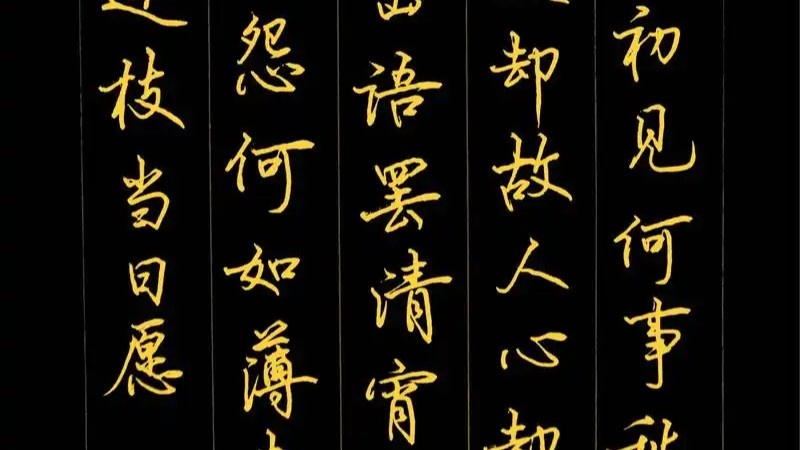 初见何事秋
却故人心却
语罢清宵
怨何如薄
连枝当日愿